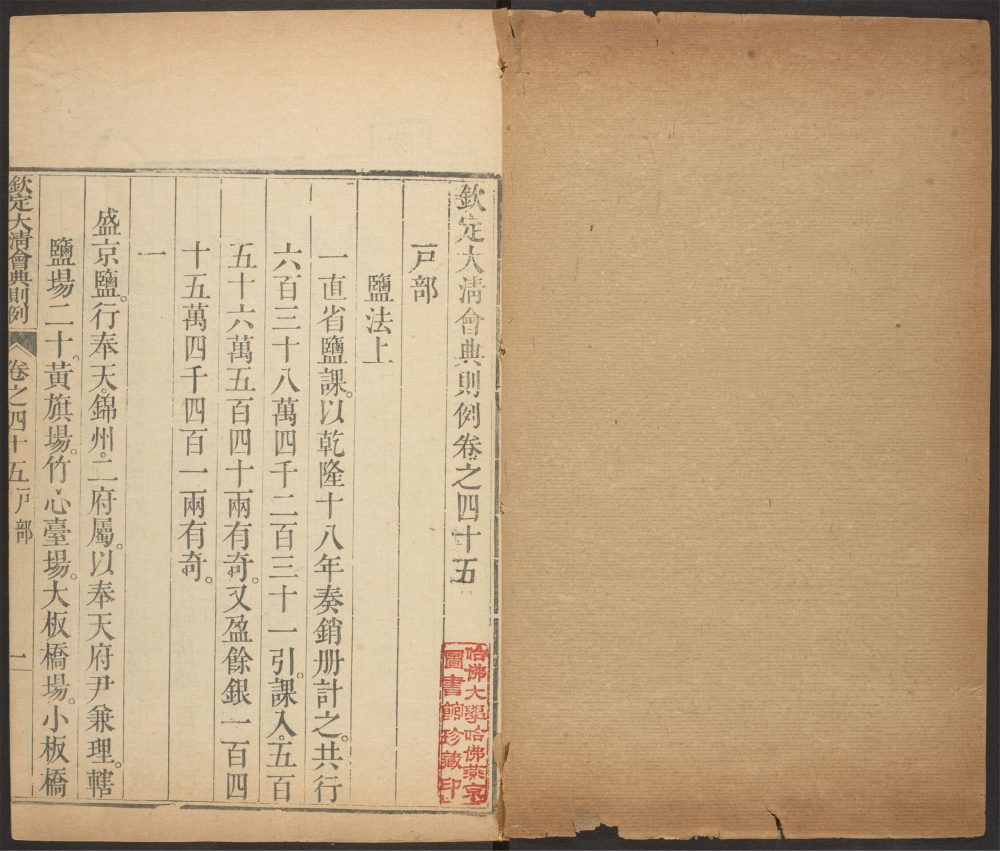 欽定大淸會典則例卷之四十五
戸部
鹽法上
一直省鹽課。以乾隆十八年奏銷册計之。共行
六百三十八萬四千二百三十一引。課入。五百
五十六萬五百四十兩有奇。又盈餘銀一百四
十五萬四千四百一兩有奇。
一
盛京鹽。行奉天。錦州。二府屬。以奉天府尹兼理。轄
鹽場二十。黃旗場。竹心臺場。大板橋場。小板橋
欽定大淸會典則例 卷之四十五戸部 一
哈佛大學哈佛燕京
圖書館珍藏印